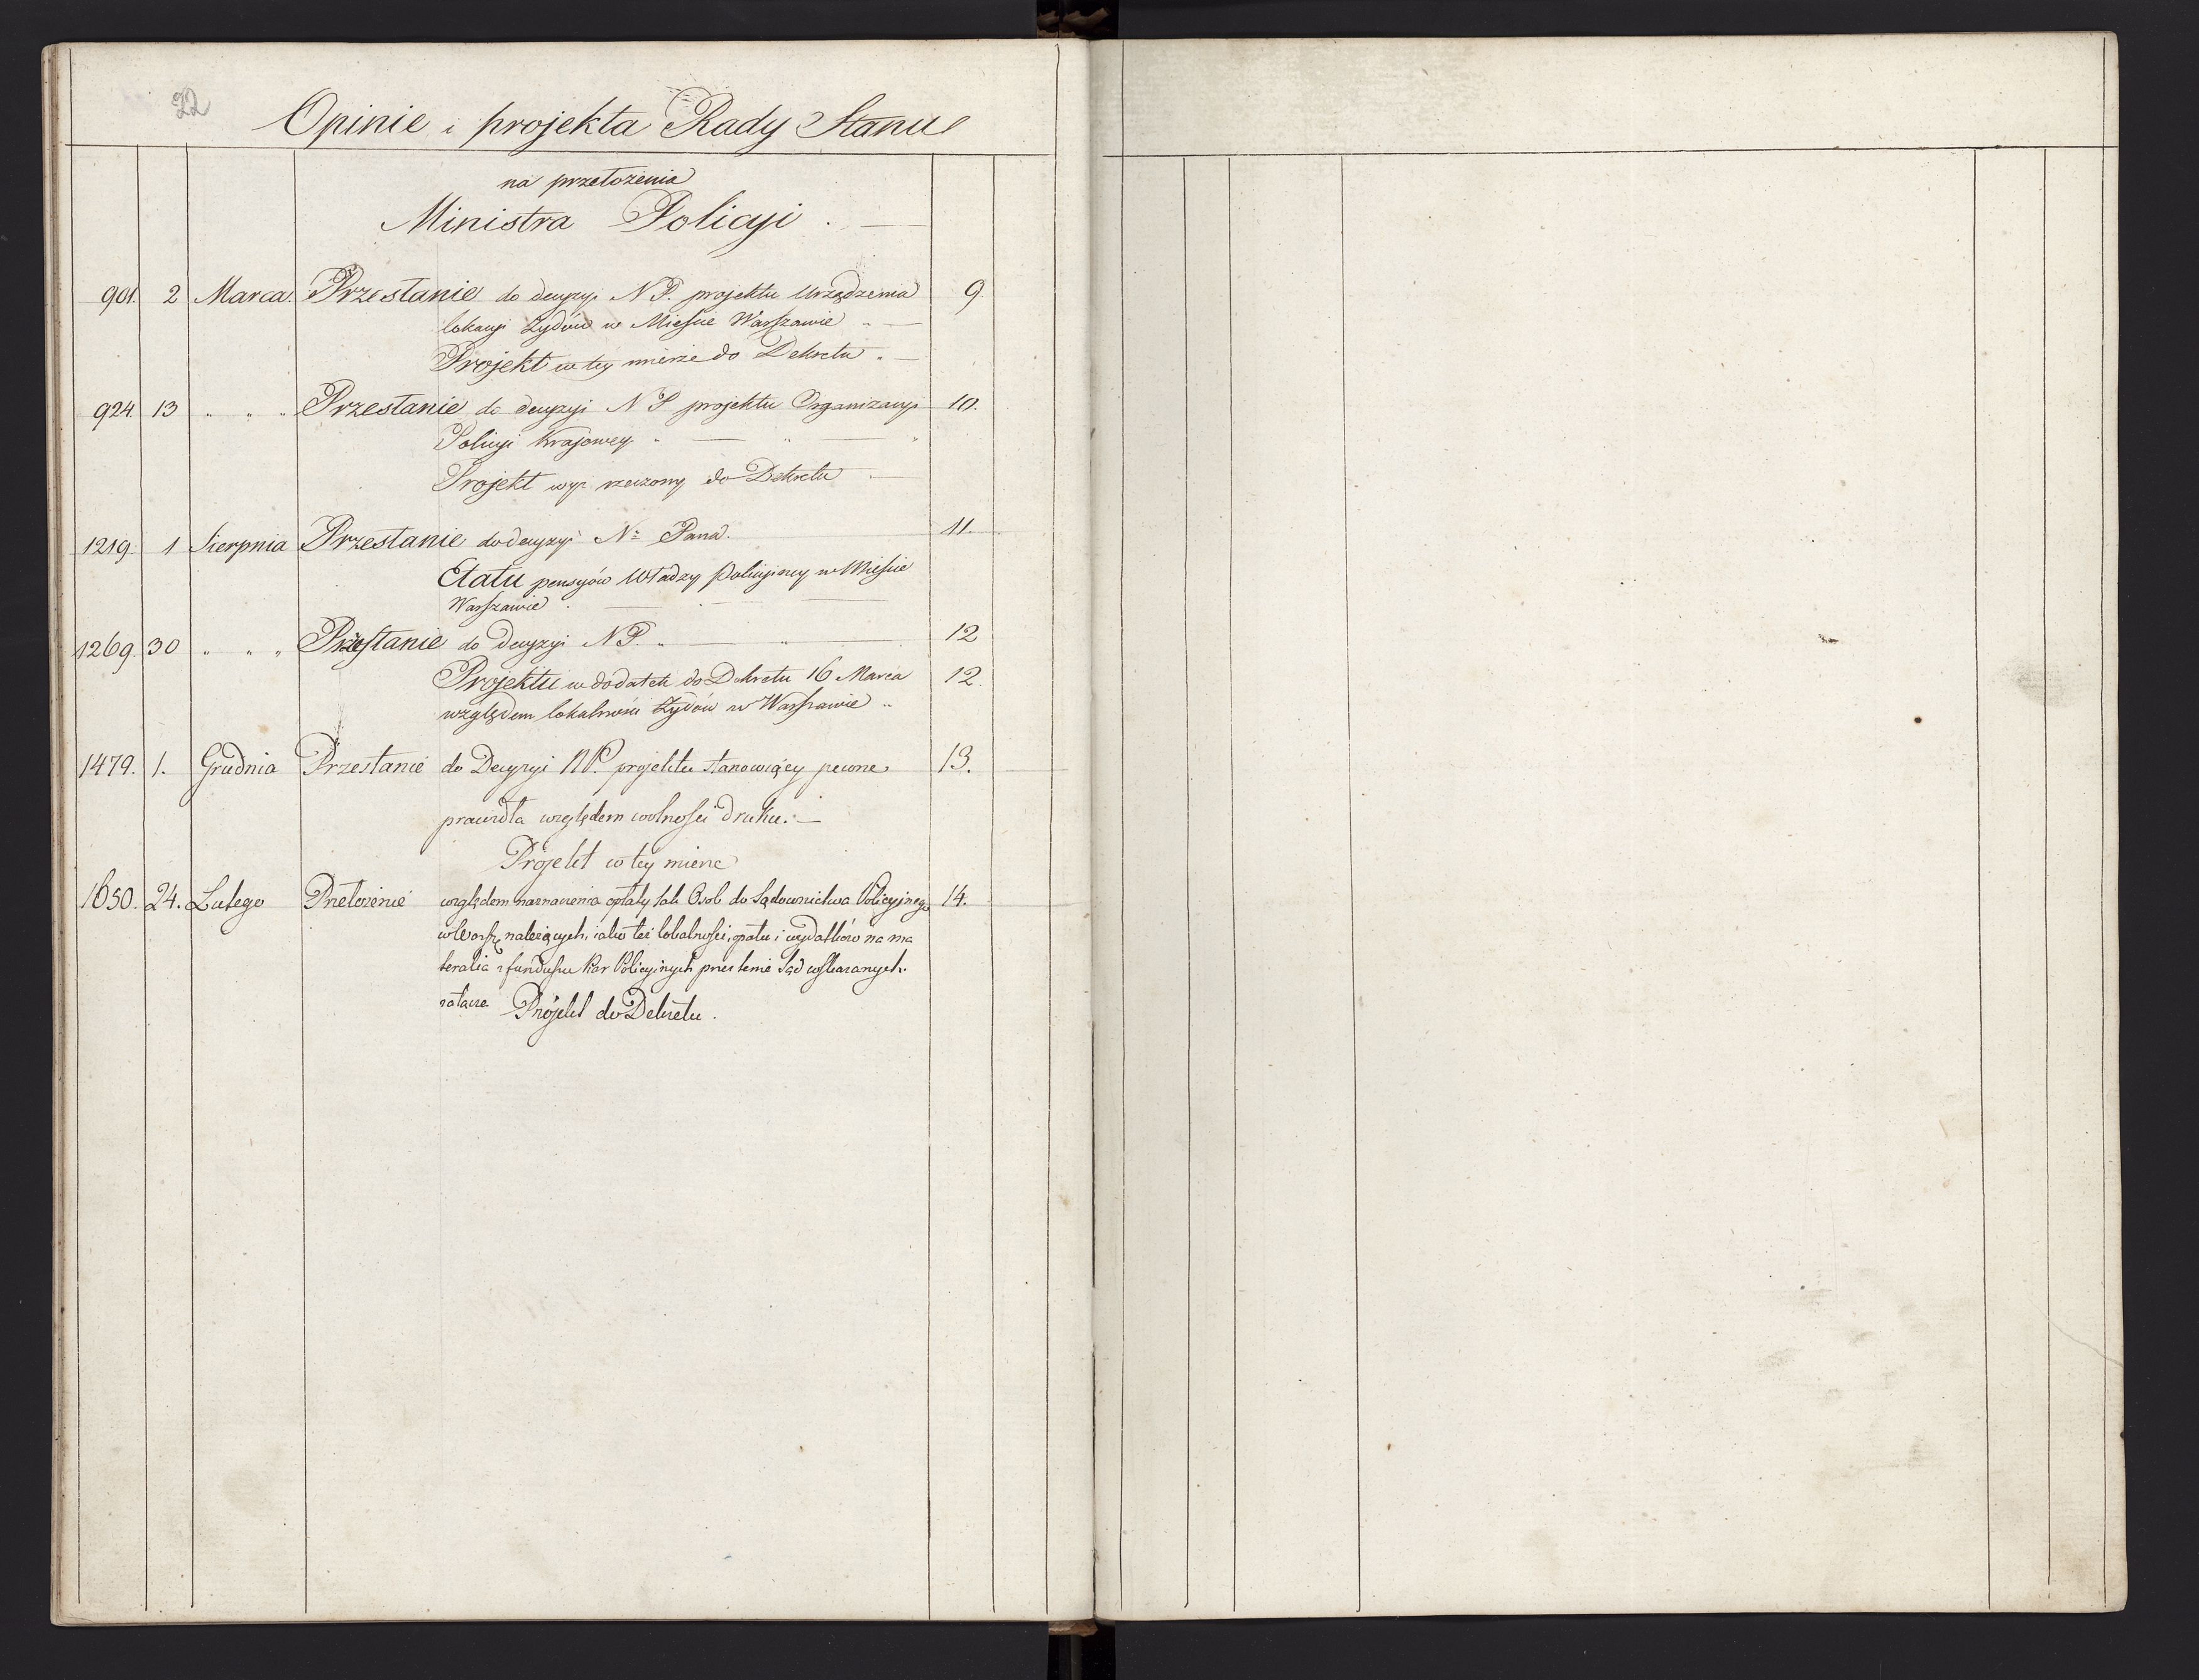 22
Opinie i projekta Rady Stanu
na przełożenia
Ministra Policyi . —
901. 2 Marca. Przesłanie do decyzyi N P. projektu Urządzenia 9.
lokacyi Żydów w Mieście Warszawie „ —
Projekt w tey mierze do Dekretu „ —
924. 13 „ „ „ Przesłanie do decyzyi N P projektu Organizacyi 10.
Policyi Krajowey „ — „ — „
Projekt wyż rzeczony do Dekretu —
1219. 1 Sierpnia Przesłanie do decyzyi Nº Pana. 11.
Etatu pensyów Władzy policyiney w Mieście
Warszawie . — . — —
1269. 30 „ „ „ Przesłanie do Decyzyi N P. „ — „ — 12
Projektu w dodatek do Dekretu 16 Marca 12.
względem lokalności Żydów w Warszawie „
1479. 1. Grudnia Przesłanie do Decyzyi N P. projektu stanowiący pewne 13.
prawidła względem wolności druku. —
Projekt w tey mierze
1650. 24. Lutego Przełożenie względem naznaczenia opłaty tak Osob do Sądownictwa Policyjnego 14.
w Warsz należących, iako też lokalności, opału i wydatków na ma
teralia z funduszu Kar Policyjnych przez tenże Sąd wskazanych.
Projekt do Dekretu.